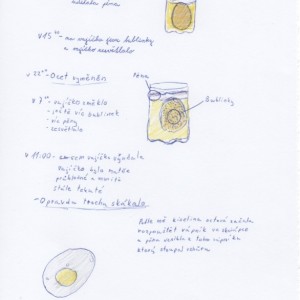 pěna
v 15⁰⁰ - na vajíčku jsou bublinky
a vajíčko zesvětlalo
v 22⁰⁰ - Ocet vyměněn
Pěna
v 7⁰⁰ - vajíčko změklo
- ještě víc bublinek
- víc pěny
- zesvětlalo
Bublinky
v 11:00 - vajíčka
vajíčko bylo
průhledné a
stále tekuté
- Opravdu trochu skákalo
Podle mě kyselina octová začala
rozpouštět vápník ve skořápce
a pěna vznikla z toho vápníku
který stoupal vzhůru